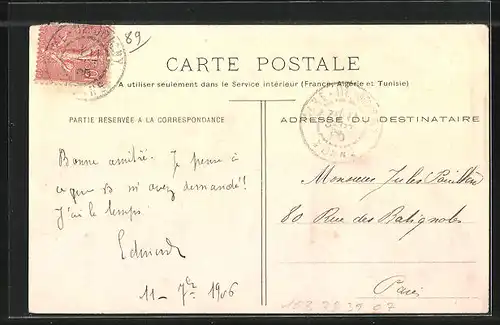 89
CARTE POSTALE
A utiliser seulement dans le Service intérieur (France, Algérie et Tunisie)
PARTIE RÉSERVÉE A LA CORRESPONDANCE
ADRESSE DU DESTINATAIRE
Bonne amitié. Je pense à
ce que B m'avez demandé!
J'ai le temps
Edmond
11 - 7bre 1906
Monsieur Jules
80 Rue des Batignoles
Paris